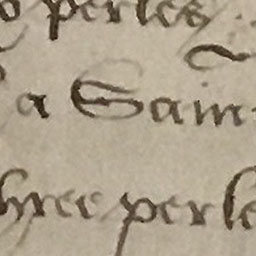 o perles
a Sain
hree perle